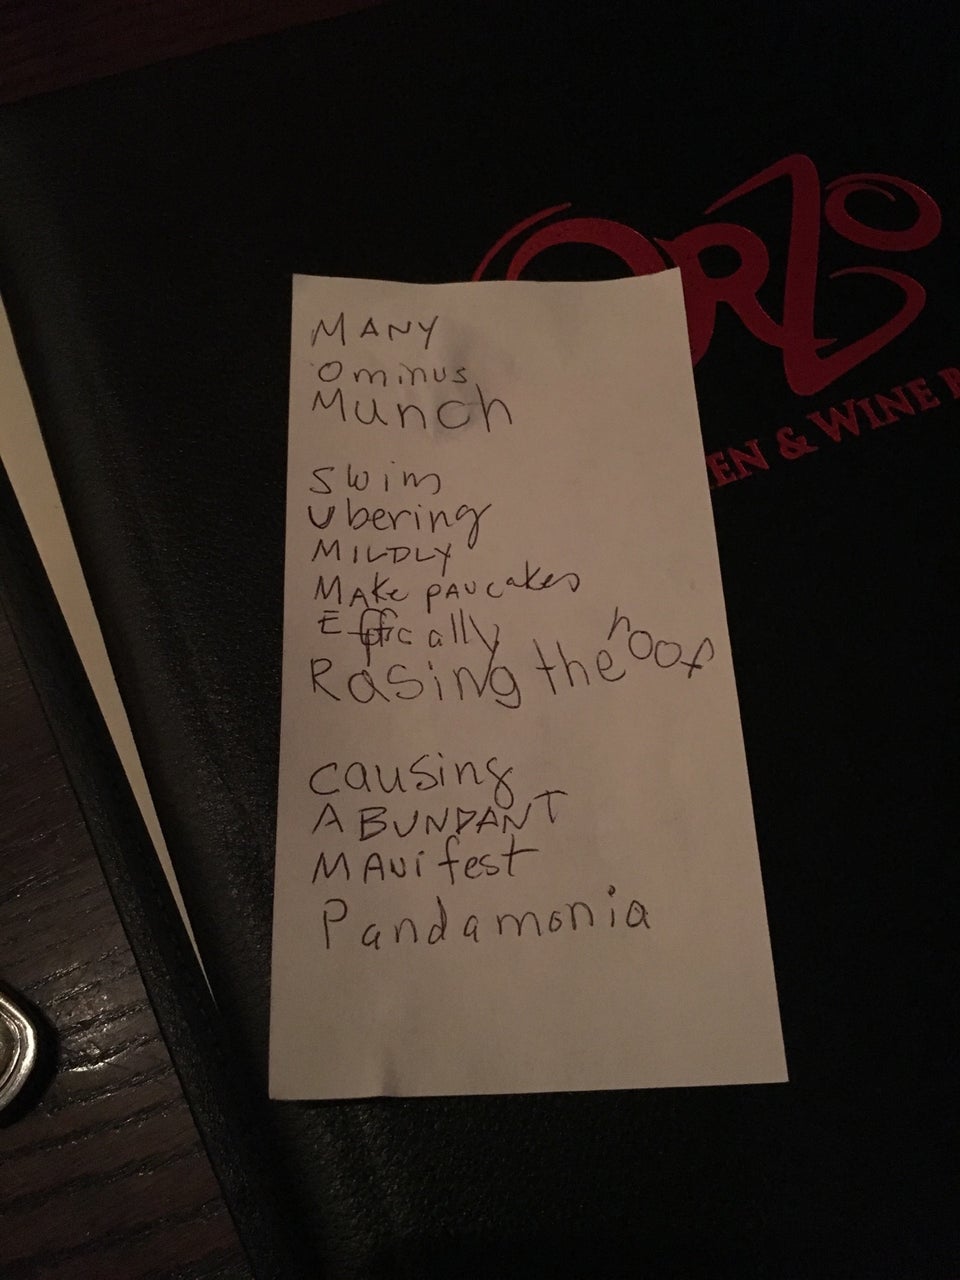 ORZO
EN & WINE B
MANY
Ominus
Munch
Swim
Ubering
MILDLY
MAke pancakes
Effically
Rasing the hoof
causing
ABUNDANT
MANifest
Pandamonia